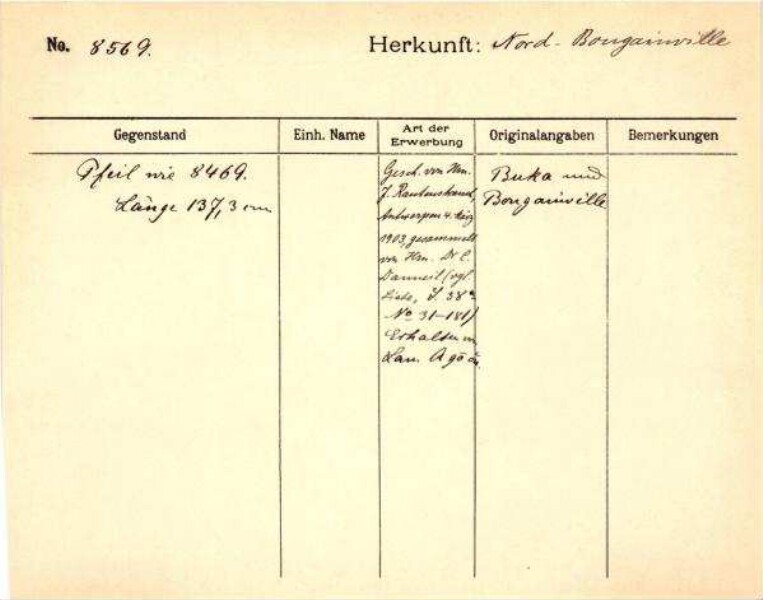 No. 8569. Herkunft: Nord-Bougainville
Gegenstand Einh. Name Art der Erwerbung Originalangaben Bemerkungen
Pfeil wie 8469.
Länge 137,3 cm
Gesch. von Hrn.
J. Rautenstrauch,
Antwerpen 4. März
1903, gesammelt
von Hrn. Dr C.
Danneil (vgl.
Liste, S. 38
No 31–181)
Erhalten
Lan. Agō
Buka und
Bougainville